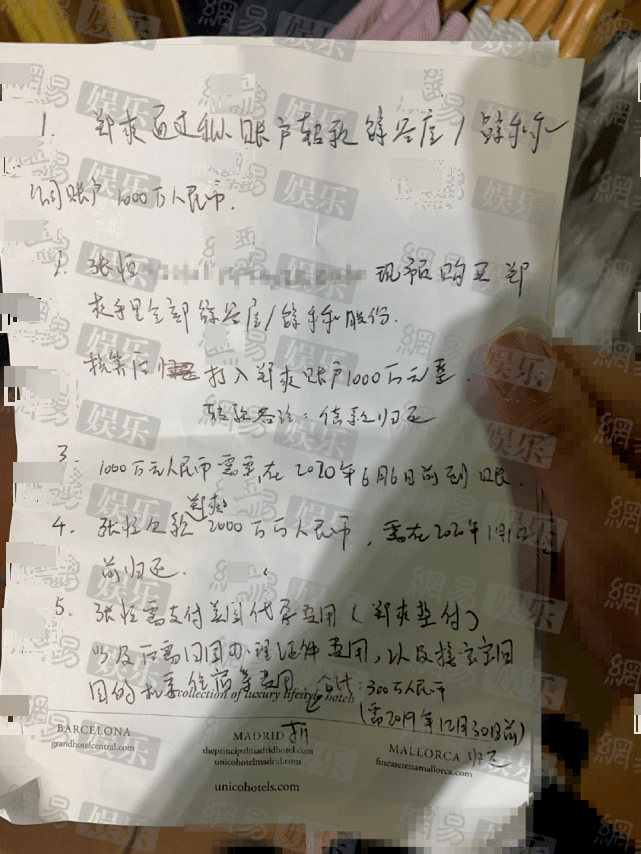 1. 郑爽通过私人账户转款 /
公司账户1000万人民币.
2. 张恒 现金购买郑
爽手里全部 / 股份.
核实后 打入郑爽账户1000万元整.
转款备注：借款归还
3. 1000万元人民币需要在2020年6月6日前到账.
4. 张恒欠款郑爽2000万元人民币，需在202 年1月1日
前归还.
5. 张恒需支付美国代孕费用（郑爽垫付）
以及后需回国办理证件费用，以及接宝宝回
国的机票住宿等费用 合计：300万人民币
collection of luxury lifestyle hotels
(需2019年12月30日前)
归还
BARCELONA
grandhotelcentral.com
MADRID
theprincipalmadridhotel.com
unicohotelmadrid.com
MALLORCA
fincaserenamallorca.com
unicohotels.com
網易娱乐